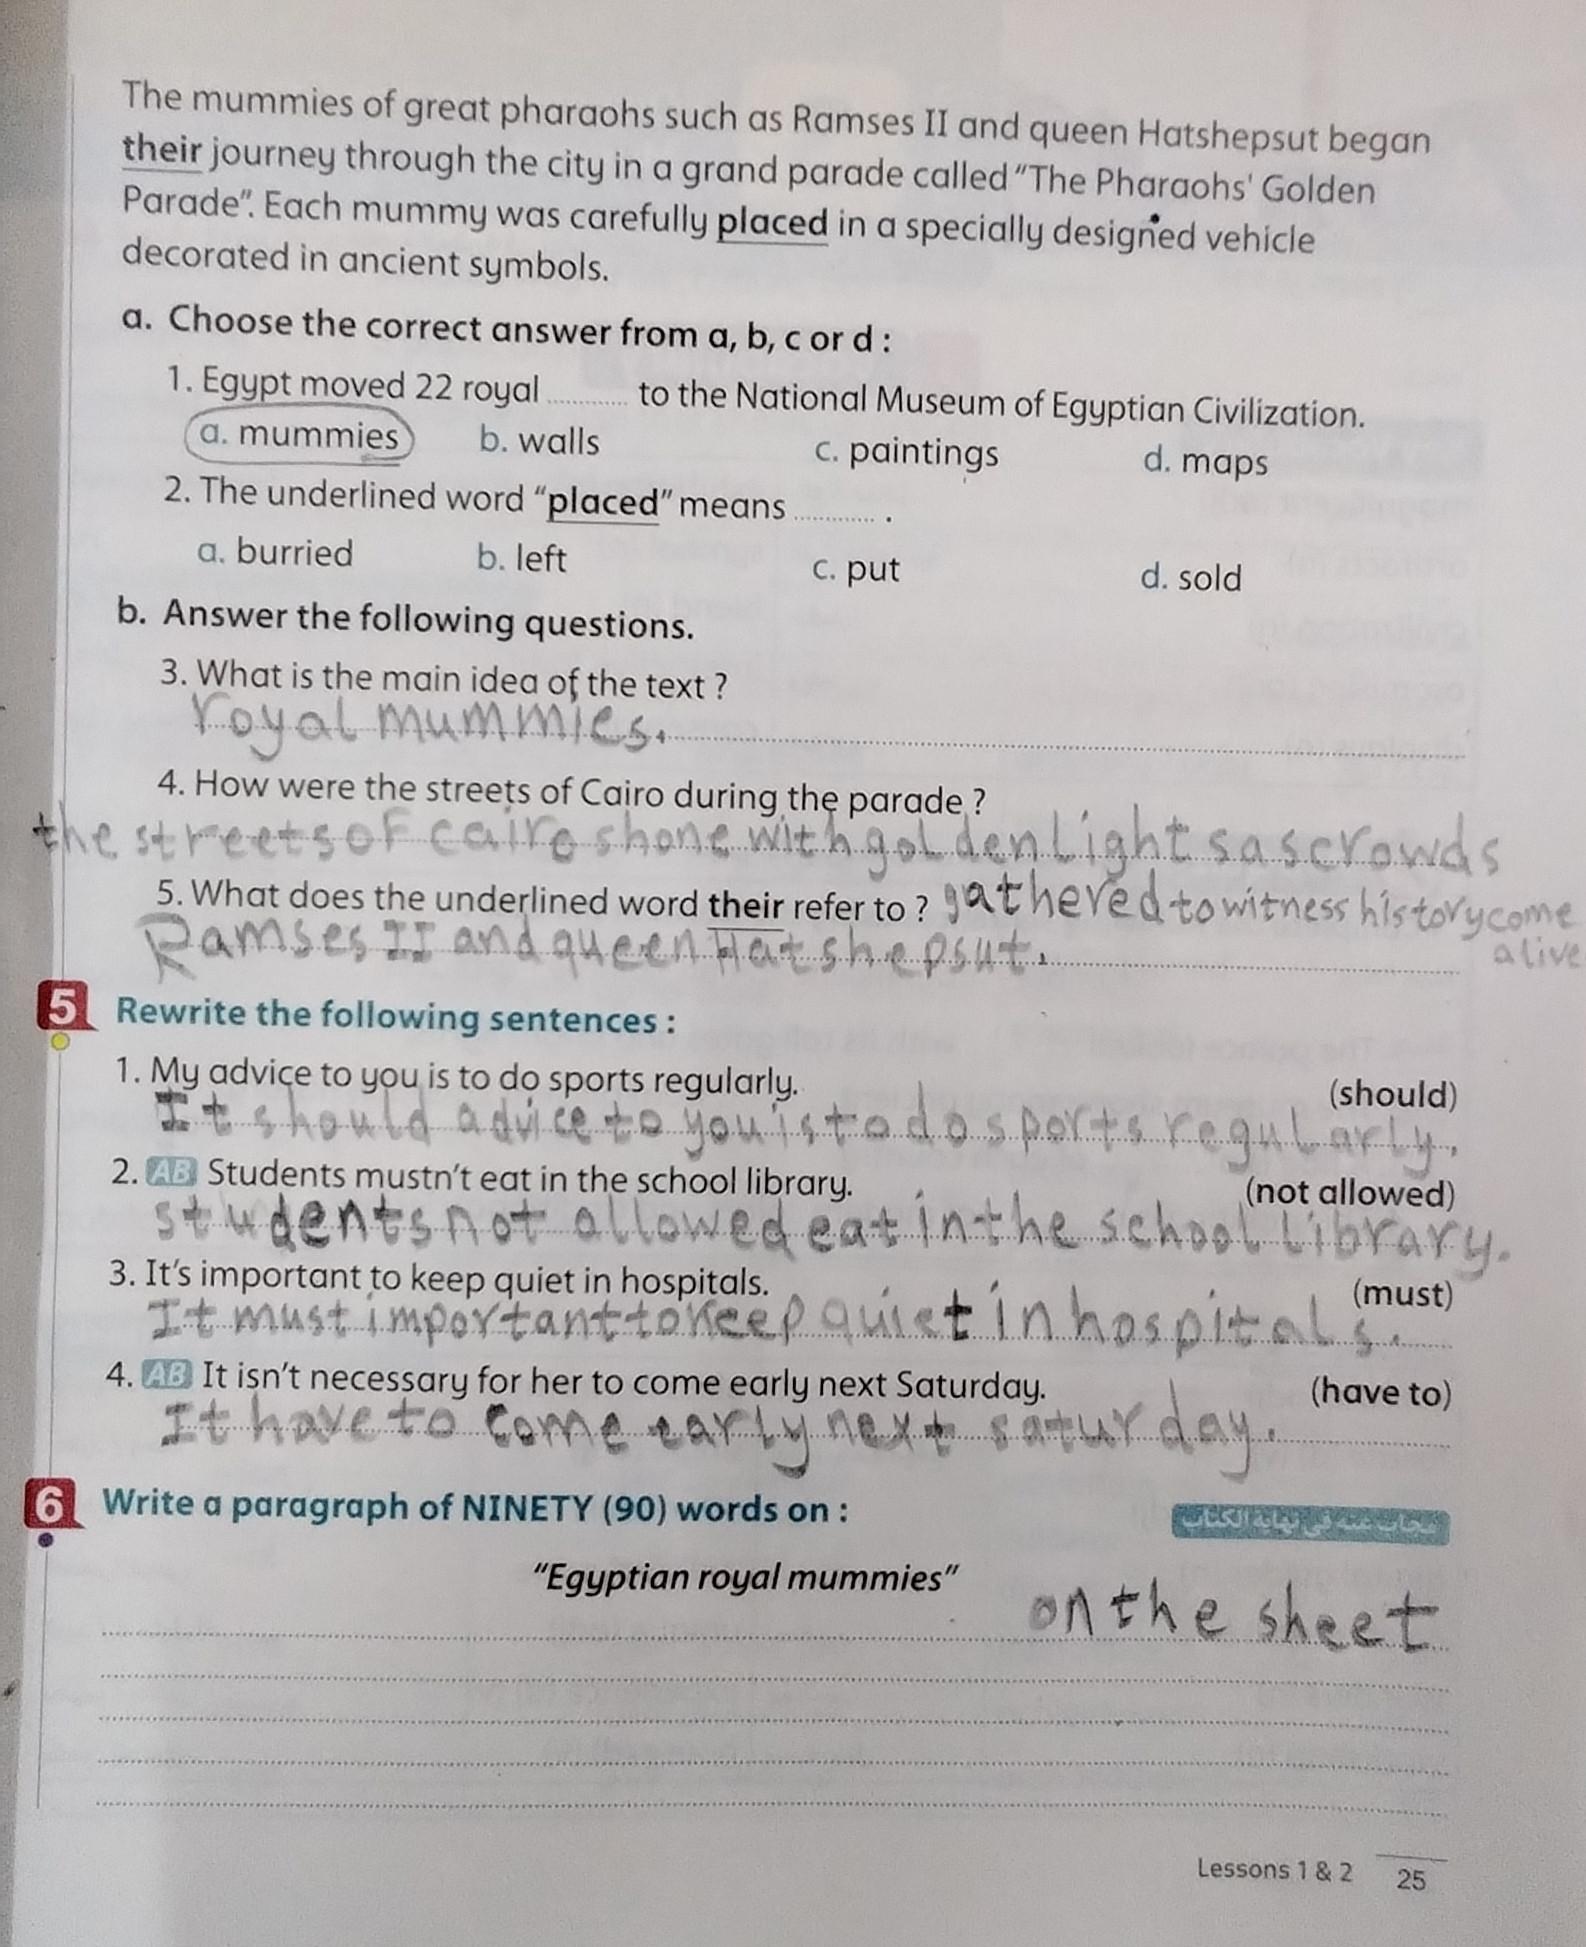 The mummies of great pharaohs such as Ramses II and queen Hatshepsut began
their journey through the city in a grand parade called "The Pharaohs' Golden
Parade". Each mummy was carefully placed in a specially designed vehicle
decorated in ancient symbols.
a. Choose the correct answer from a, b, c or d :
1. Egypt moved 22 royal ............ to the National Museum of Egyptian Civilization.
a. mummies b. walls c. paintings d. maps
2. The underlined word "placed" means ............ .
a. burried b. left c. put d. sold
b. Answer the following questions.
3. What is the main idea of the text ?
royal mummies.
4. How were the streets of Cairo during the parade ?
the streets of cairo shone with golden Lights as crowds
5. What does the underlined word their refer to ? gathered to witness history come
alive
Ramses II and queen Hatshepsut.
5 Rewrite the following sentences :
1. My advice to you is to do sports regularly. (should)
It should advice to you is to do sports regularly.
2. AB Students mustn't eat in the school library. (not allowed)
students not allowed eat in the school library.
3. It's important to keep quiet in hospitals. (must)
It must important to keep quiet in hospitals.
4. AB It isn't necessary for her to come early next Saturday. (have to)
It have to come early next saturday.
6 Write a paragraph of NINETY (90) words on :
"Egyptian royal mummies"
on the sheet
Lessons 1 & 2 25